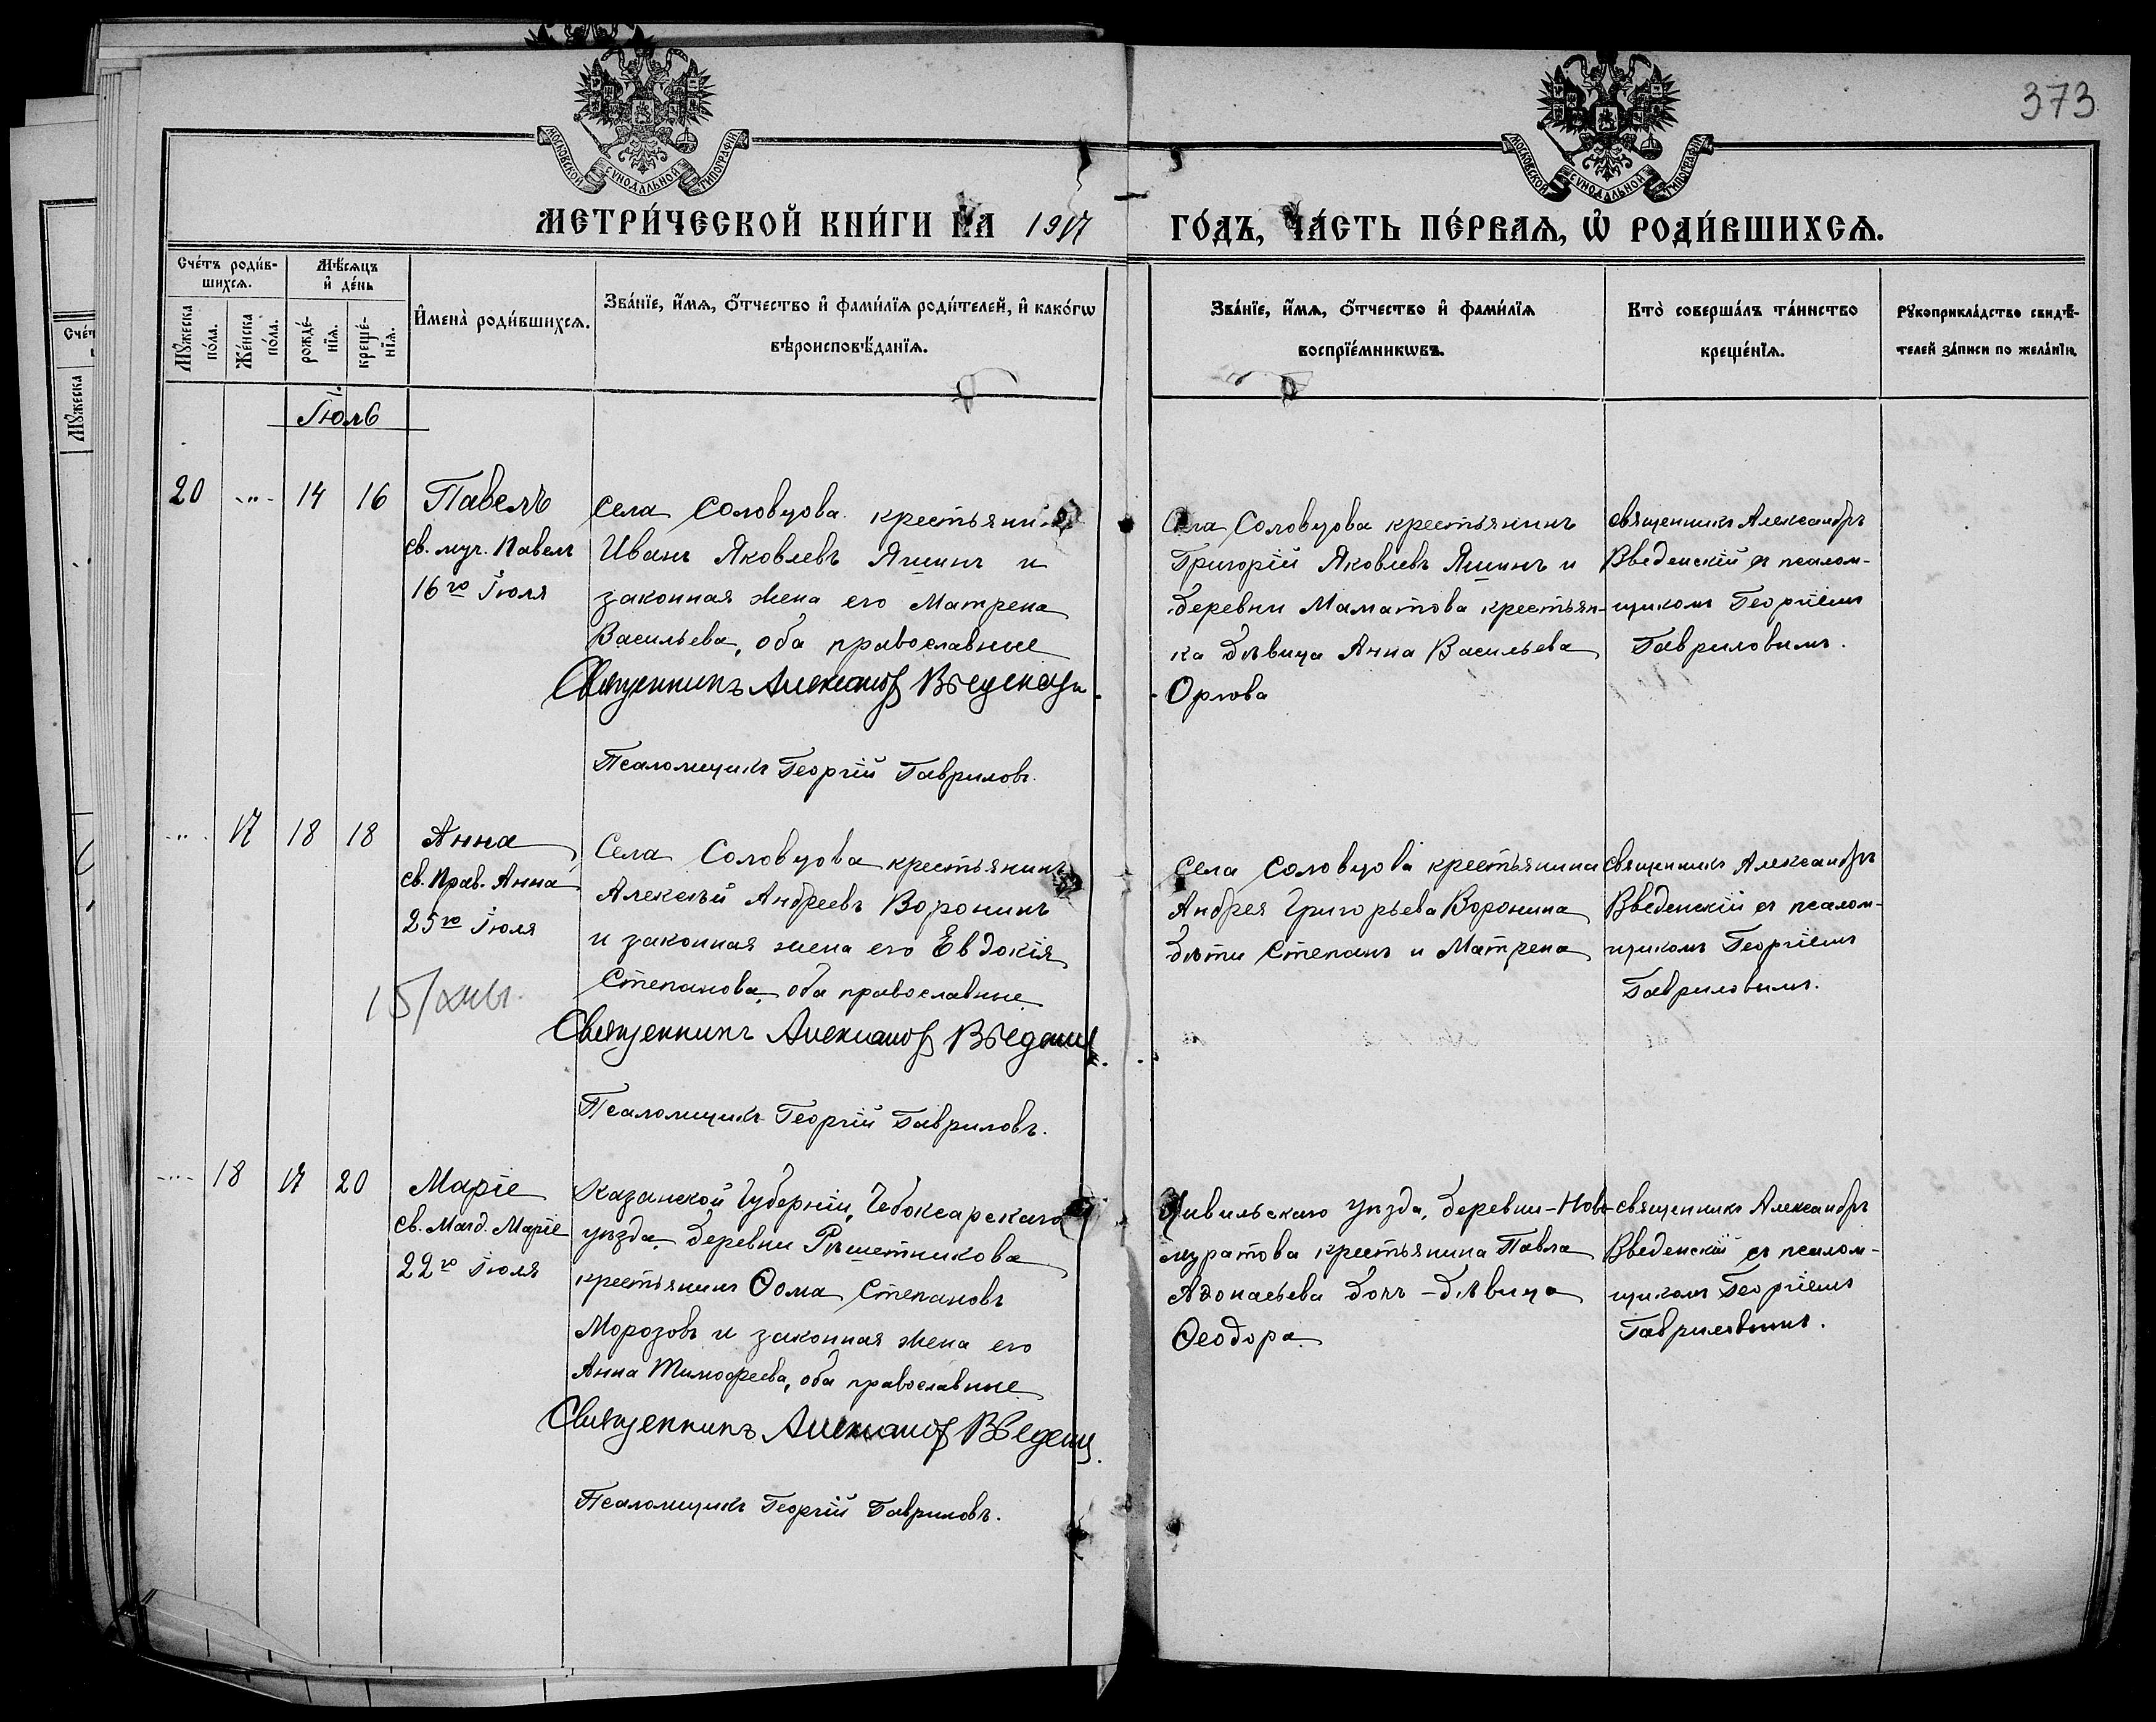 373
МОСКОВСКОЙ СУНОДАЛЬНОЙ ТИПОГРАФІИ
МОСКОВСКОЙ СУНОДАЛЬНОЙ ТИПОГРАФІИ
МЕТРИ́ЧЕСКОЙ КНИ́ГИ НА 1917
ГО́ДЪ, ЧА́СТЬ ПЕ́РВАѦ, Ѡ҆ РОДИ́ВШИХСѦ.
Сче́тъ роди́в-
шихсѧ.
Мѣ́сѧцъ
и҆ де́нь
Мꙋ́жеска
по́ла.
Же́нска
по́ла.
рожде́-
нїѧ.
креще́-
нїѧ.
И҆мена̀ роди́вшихсѧ.
Зва́нїе, и҆́мѧ, ѻ҆́тчество и҆ фами́лїѧ роди́телей, и҆ како́гѡ
вѣроисповѣ́данїѧ.
Зва́нїе, и҆́мѧ, ѻ҆́тчество и҆ фами́лїѧ
воспрїе́мникѡвъ.
Кто̀ соверша́лъ та́инство
креще́нїѧ.
Рꙋкоприкла́дство свидѣ́-
телей за́писи по жела́нїю.
Іюль
20 -"- 14 16
Павелъ
св. муч. Павелъ
16го Іюля
Села Соловцова крестьянинъ
Иванъ Яковлевъ Яшинъ и
законная жена его Матрена
Васильева, оба православные
Священникъ Александръ Введенскій
Псаломщикъ Георгій Гавриловъ.
Села Соловцова крестьянинъ
Григорій Яковлевъ Яшинъ и
деревни Маматова крестьян-
ка дѣвица Анна Васильева
Орлова
священникъ Александръ
Введенскій съ псалом-
щикомъ Георгіемъ
Гавриловымъ.
-"- 17 18 18
Анна
св. Прав. Анна
25го Іюля
15/
Села Соловцова крестьянинъ
Алексѣй Андреевъ Воронинъ
и законная жена его Евдокія
Степанова, оба православные
Священникъ Александръ Введенскій
Псаломщикъ Георгій Гавриловъ.
Села Соловцова крестьянина
Андрея Григорьева Воронина
дѣти Степанъ и Матрена
священникъ Александръ
Введенскій съ псалом-
щикомъ Георгіемъ
Гавриловымъ.
-"- 18 17 20
Маріе
св. Магд. Маріе
22го Іюля
Казанской Губерніи, Чебоксарскаго
уѣзда, деревни Рѣшетникова
крестьянинъ Ѳома Степановъ
Морозовъ и законная жена его
Анна Тимофеева, оба православные
Священникъ Александръ Введенскій
Псаломщикъ Георгій Гавриловъ.
Цивильскаго уѣзда, деревни-Ново-
муратова крестьянина Павла
дочь-дѣвица
Ѳеодора
священникъ Александръ
Введенскій съ псалом-
щикомъ Георгіемъ
Гавриловымъ.
Сче́т
Мꙋ́жеска